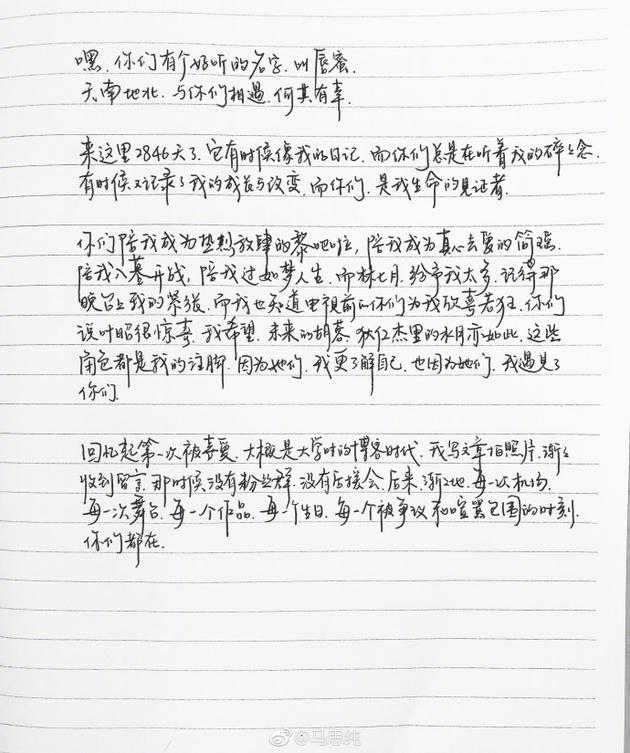 嘿.你们有个好听的名字.叫唇蜜.
天南地北.与你们相遇.何其有幸.
来这里2846天了.它有时候像我的日记.而你们总是在听着我的碎碎念.
有时候又记录了我的成长与改变.而你们.是我生命的见证者.
你们陪我成为热烈放肆的黎吧啦,陪我成为真心去爱的简瑶.
陪我入墓开战,陪我过如梦人生.而林七月.给予我太多.记得那
晚台上我的紧张.而我也知道电视前的你们为我欣喜若狂.你们
说叶昭很惊喜.我希望.未来的胡蓉.狄仁杰里的水月亦如此.这些
角色都是我的注脚.因为她们.我更了解自己.也因为她们.我遇见了
你们.
回忆起第一次被喜爱.大概是大学时的博客时代.我写文章拍照片.渐渐
收到留言.那时候没有粉丝群.没有后援会.后来.渐渐地.每一次机场.
每一次舞台.每一个作品.每一个生日.每一个被争议和喧嚣包围的时刻.
你们都在.
@马思纯